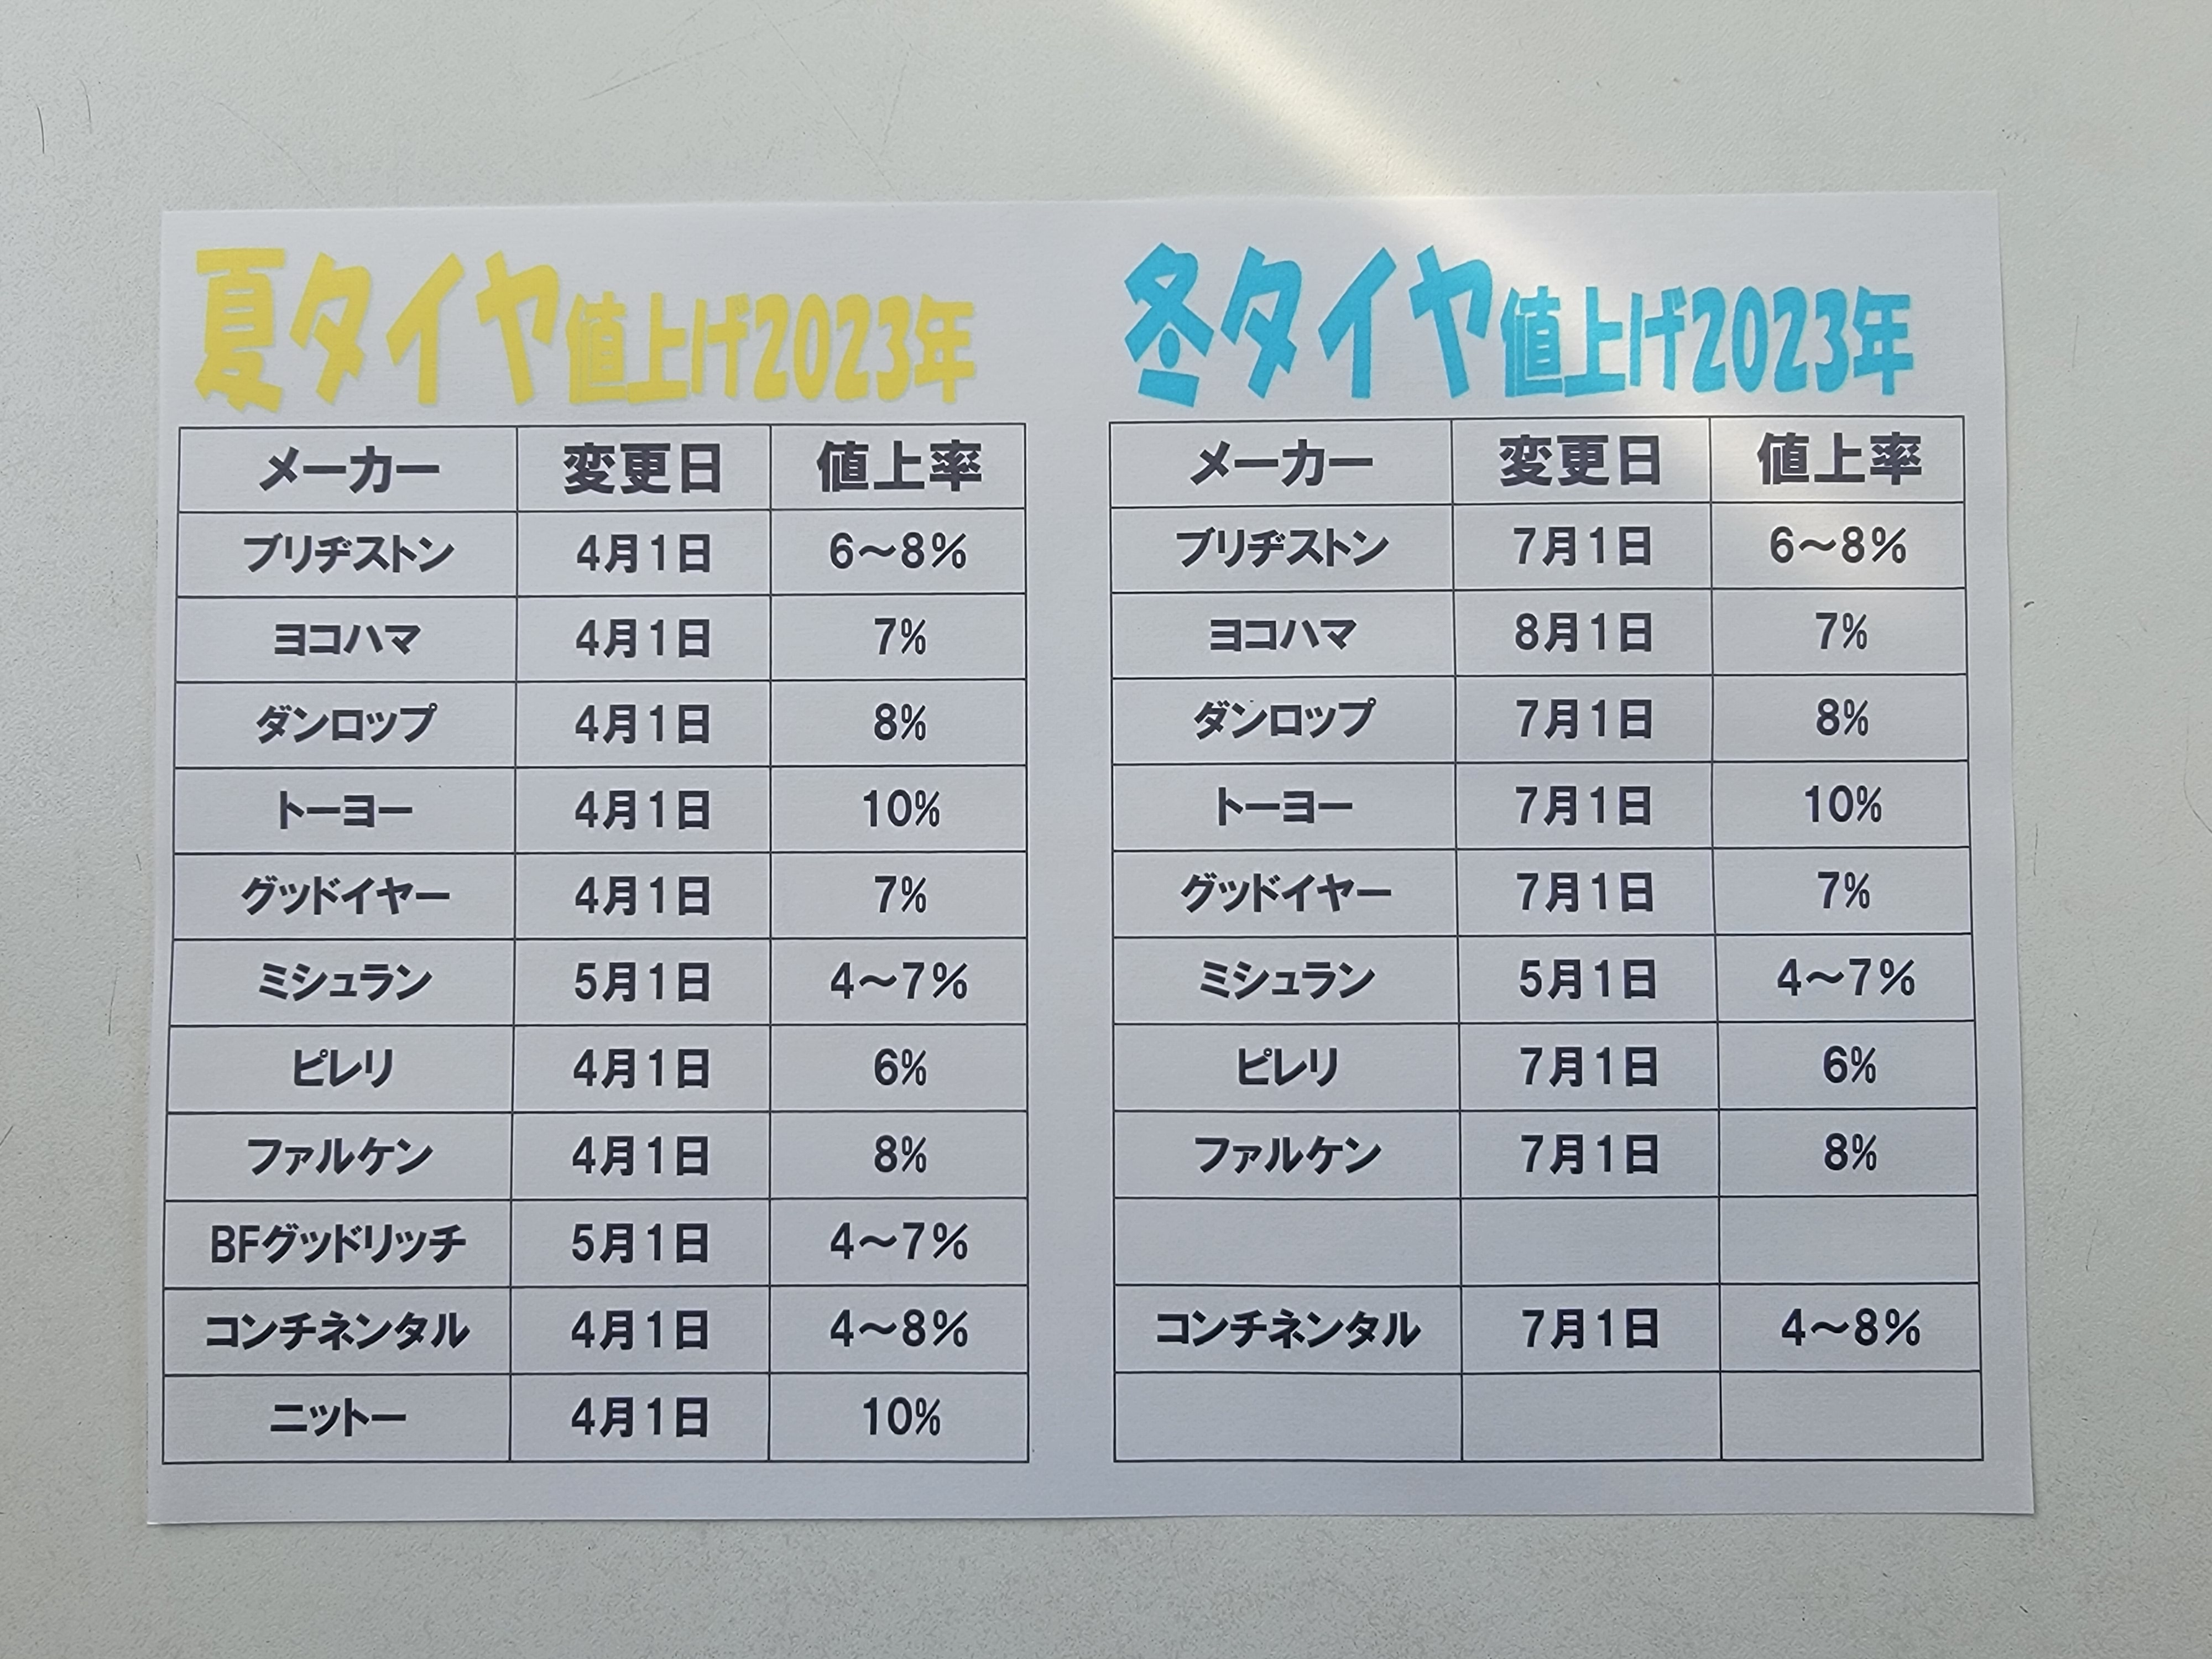 夏タイヤ値上げ2023年
メーカー 変更日 値上率
ブリヂストン 4月1日 6～8%
ヨコハマ 4月1日 7%
ダンロップ 4月1日 8%
トーヨー 4月1日 10%
グッドイヤー 4月1日 7%
ミシュラン 5月1日 4～7%
ピレリ 4月1日 6%
ファルケン 4月1日 8%
BFグッドリッチ 5月1日 4～7%
コンチネンタル 4月1日 4～8%
ニットー 4月1日 10%
冬タイヤ値上げ2023年
メーカー 変更日 値上率
ブリヂストン 7月1日 6～8%
ヨコハマ 8月1日 7%
ダンロップ 7月1日 8%
トーヨー 7月1日 10%
グッドイヤー 7月1日 7%
ミシュラン 5月1日 4～7%
ピレリ 7月1日 6%
ファルケン 7月1日 8%
コンチネンタル 7月1日 4～8%